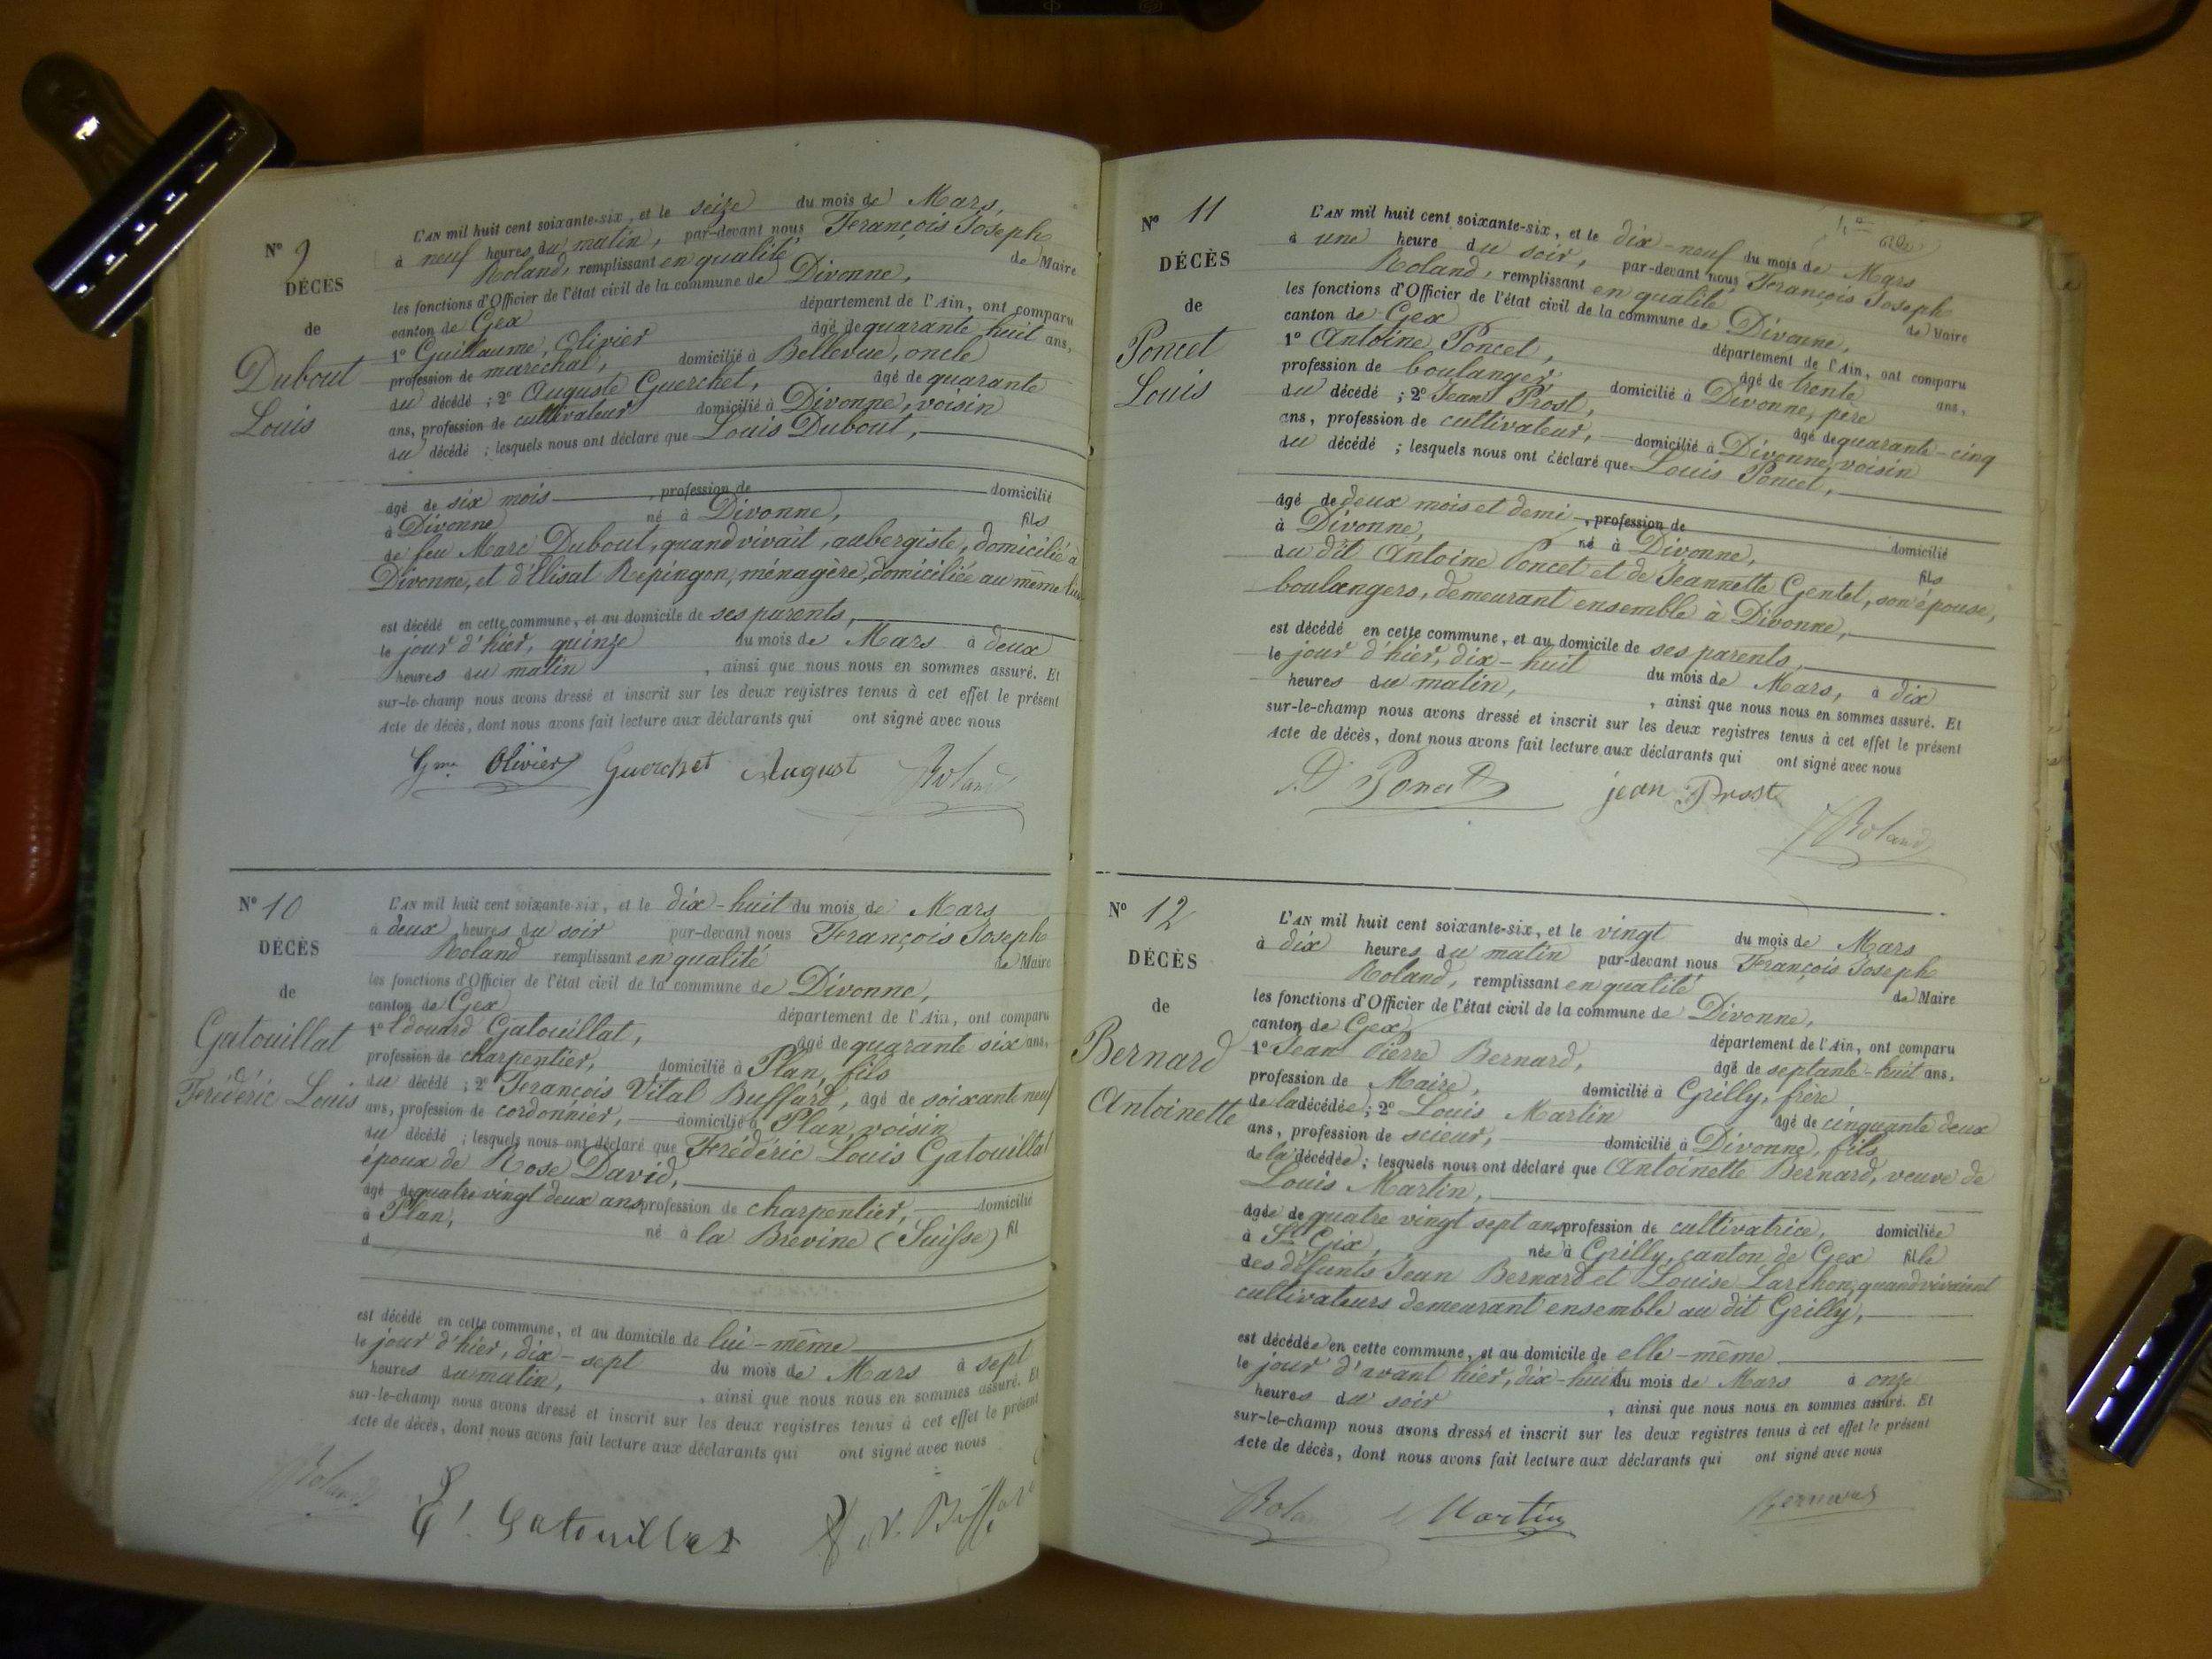 N° 9
DÉCÈS
de
Dubout
Louis
L'AN mil huit cent soixante-six, et le seize du mois de Mars,
à neuf heures du matin, par-devant nous François Joseph
Roland, remplissant en qualité de Maire
les fonctions d'Officier de l'état civil de la commune de Divonne,
canton de Gex département de l'Ain, ont comparu
1° Guillaume, Olivier âgé de quarante huit ans,
profession de maréchal, domicilié à Bellevue, oncle
du décédé ; 2° Auguste Guerchet, âgé de quarante
ans, profession de cultivateur domicilié à Divonne, voisin
du décédé ; lesquels nous ont déclaré que Louis Dubout,
âgé de six mois, profession de domicilié
à Divonne né à Divonne, fils
de feu Marc Dubout, quand vivait, aubergiste, domicilié à
Divonne, et d'Elisat Repingon, ménagère, domiciliée au même lieu
est décédé en cette commune, et au domicile de ses parents,
le jour d'hier, quinze du mois de Mars à deux
heures du matin, ainsi que nous nous en sommes assuré. Et
sur-le-champ nous avons dressé et inscrit sur les deux registres tenus à cet effet le présent
Acte de décès, dont nous avons fait lecture aux déclarants qui ont signé avec nous
Gme Olivier Guerchet August Roland
N° 10
DÉCÈS
de
Gatouillat
Frédéric Louis
L'AN mil huit cent soixante-six, et le dix-huit du mois de Mars
à deux heures du soir par-devant nous François Joseph
Roland remplissant en qualité de Maire
les fonctions d'Officier de l'état civil de la commune de Divonne,
canton de Gex département de l'Ain, ont comparu
1° Edouard Gatouillat, âgé de quarante six ans,
profession de charpentier, domicilié à Plan, fils
du décédé ; 2° François Vital Buffard, âgé de soixante neuf
ans, profession de cordonnier, domicilié à Plan, voisin
du décédé ; lesquels nous ont déclaré que Frédéric Louis Gatouillat
époux de Rose David,
âgé de quatre vingt deux ans profession de charpentier, domicilié
à Plan, né à la Brévine (Suisse) fil
d
est décédé en cette commune, et au domicile de lui-même
le jour d'hier, dix-sept du mois de Mars à sept
heures du matin, ainsi que nous nous en sommes assuré. Et
sur-le-champ nous avons dressé et inscrit sur les deux registres tenus à cet effet le présent
Acte de décès, dont nous avons fait lecture aux déclarants qui ont signé avec nous
Roland Gatouillat Buffard
N° 11
DÉCÈS
de
Poncet
Louis
L'AN mil huit cent soixante-six, et le dix-neuf du mois de Mars
à une heure du soir, par-devant nous François Joseph
Roland, remplissant en qualité de Maire
les fonctions d'Officier de l'état civil de la commune de Divonne,
canton de Gex département de l'Ain, ont comparu
1° Antoine Poncet, âgé de trente ans,
profession de boulanger, domicilié à Divonne, père
du décédé ; 2° Jean Prost, âgé de quarante-cinq
ans, profession de cultivateur, domicilié à Divonne, voisin
du décédé ; lesquels nous ont déclaré que Louis Poncet,
âgé de deux mois et demi, profession de domicilié
à Divonne, né à Divonne, fils
du dit Antoine Poncet et de Jeannette Gentet, son épouse,
boulangers, demeurant ensemble à Divonne,
est décédé en cette commune, et au domicile de ses parents,
le jour d'hier, dix-huit du mois de Mars, à dix
heures du matin, ainsi que nous nous en sommes assuré. Et
sur-le-champ nous avons dressé et inscrit sur les deux registres tenus à cet effet le présent
Acte de décès, dont nous avons fait lecture aux déclarants qui ont signé avec nous
Poncet jean Prost
Roland
N° 12
DÉCÈS
de
Bernard
Antoinette
L'AN mil huit cent soixante-six, et le vingt du mois de Mars
à dix heures du matin par-devant nous François Joseph
Roland, remplissant en qualité de Maire
les fonctions d'Officier de l'état civil de la commune de Divonne,
canton de Gex département de l'Ain, ont comparu
1° Jean Pierre Bernard, âgé de septante-huit ans,
profession de Maire, domicilié à Grilly, frère
de la décédée ; 2° Louis Martin âgé de cinquante deux
ans, profession de scieur, domicilié à Divonne, fils
de la décédée ; lesquels nous ont déclaré que Antoinette Bernard, veuve de
Louis Martin,
âgée de quatre vingt sept ans, profession de cultivatrice, domiciliée
à St Gix, née à Grilly, canton de Gex fille
des défunts Jean Bernard et Louise Larchon, quand vivaient
cultivateurs demeurant ensemble au dit Grilly,
est décédée en cette commune, et au domicile de elle-même
le jour d'avant hier, dix-huit du mois de Mars à onze
heures du soir, ainsi que nous nous en sommes assuré. Et
sur-le-champ nous avons dressé et inscrit sur les deux registres tenus à cet effet le présent
Acte de décès, dont nous avons fait lecture aux déclarants qui ont signé avec nous
Roland Martin Bernard